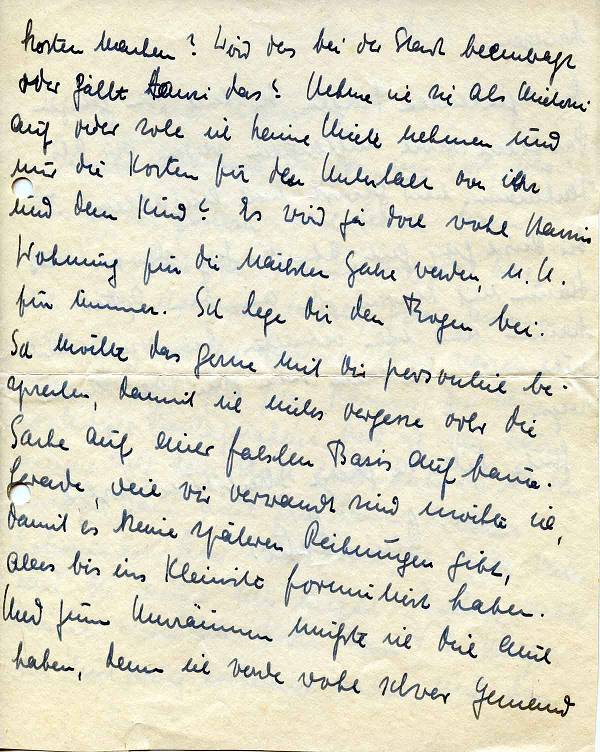 kosten machen? Wird das bei der Stadt beantragt
oder zahlt Hanni das? Nehme ich sie als Mieterin
auf oder soll ich keine Miete nehmen und
nur die Kosten für den Unterhalt von ihr
und dem Kind? Es wird ja doch wohl Hannis
Wohnung für die nächsten Jahre werden, u. U.
für immer. Ich lege Dir den Bogen bei.
Ich möchte das gerne mit Dir persönlich be-
sprechen, damit ich nichts vergesse oder die
Sache auf einer falschen Basis aufbaue.
Gerade, weil wir verwandt sind möchte ich,
damit es keine späteren Reibungen gibt,
alles bis ins Kleinste formuliert haben.
Und zum Umräumen müßte ich Dich auch
haben, denn ich werde wohl schwer jemand